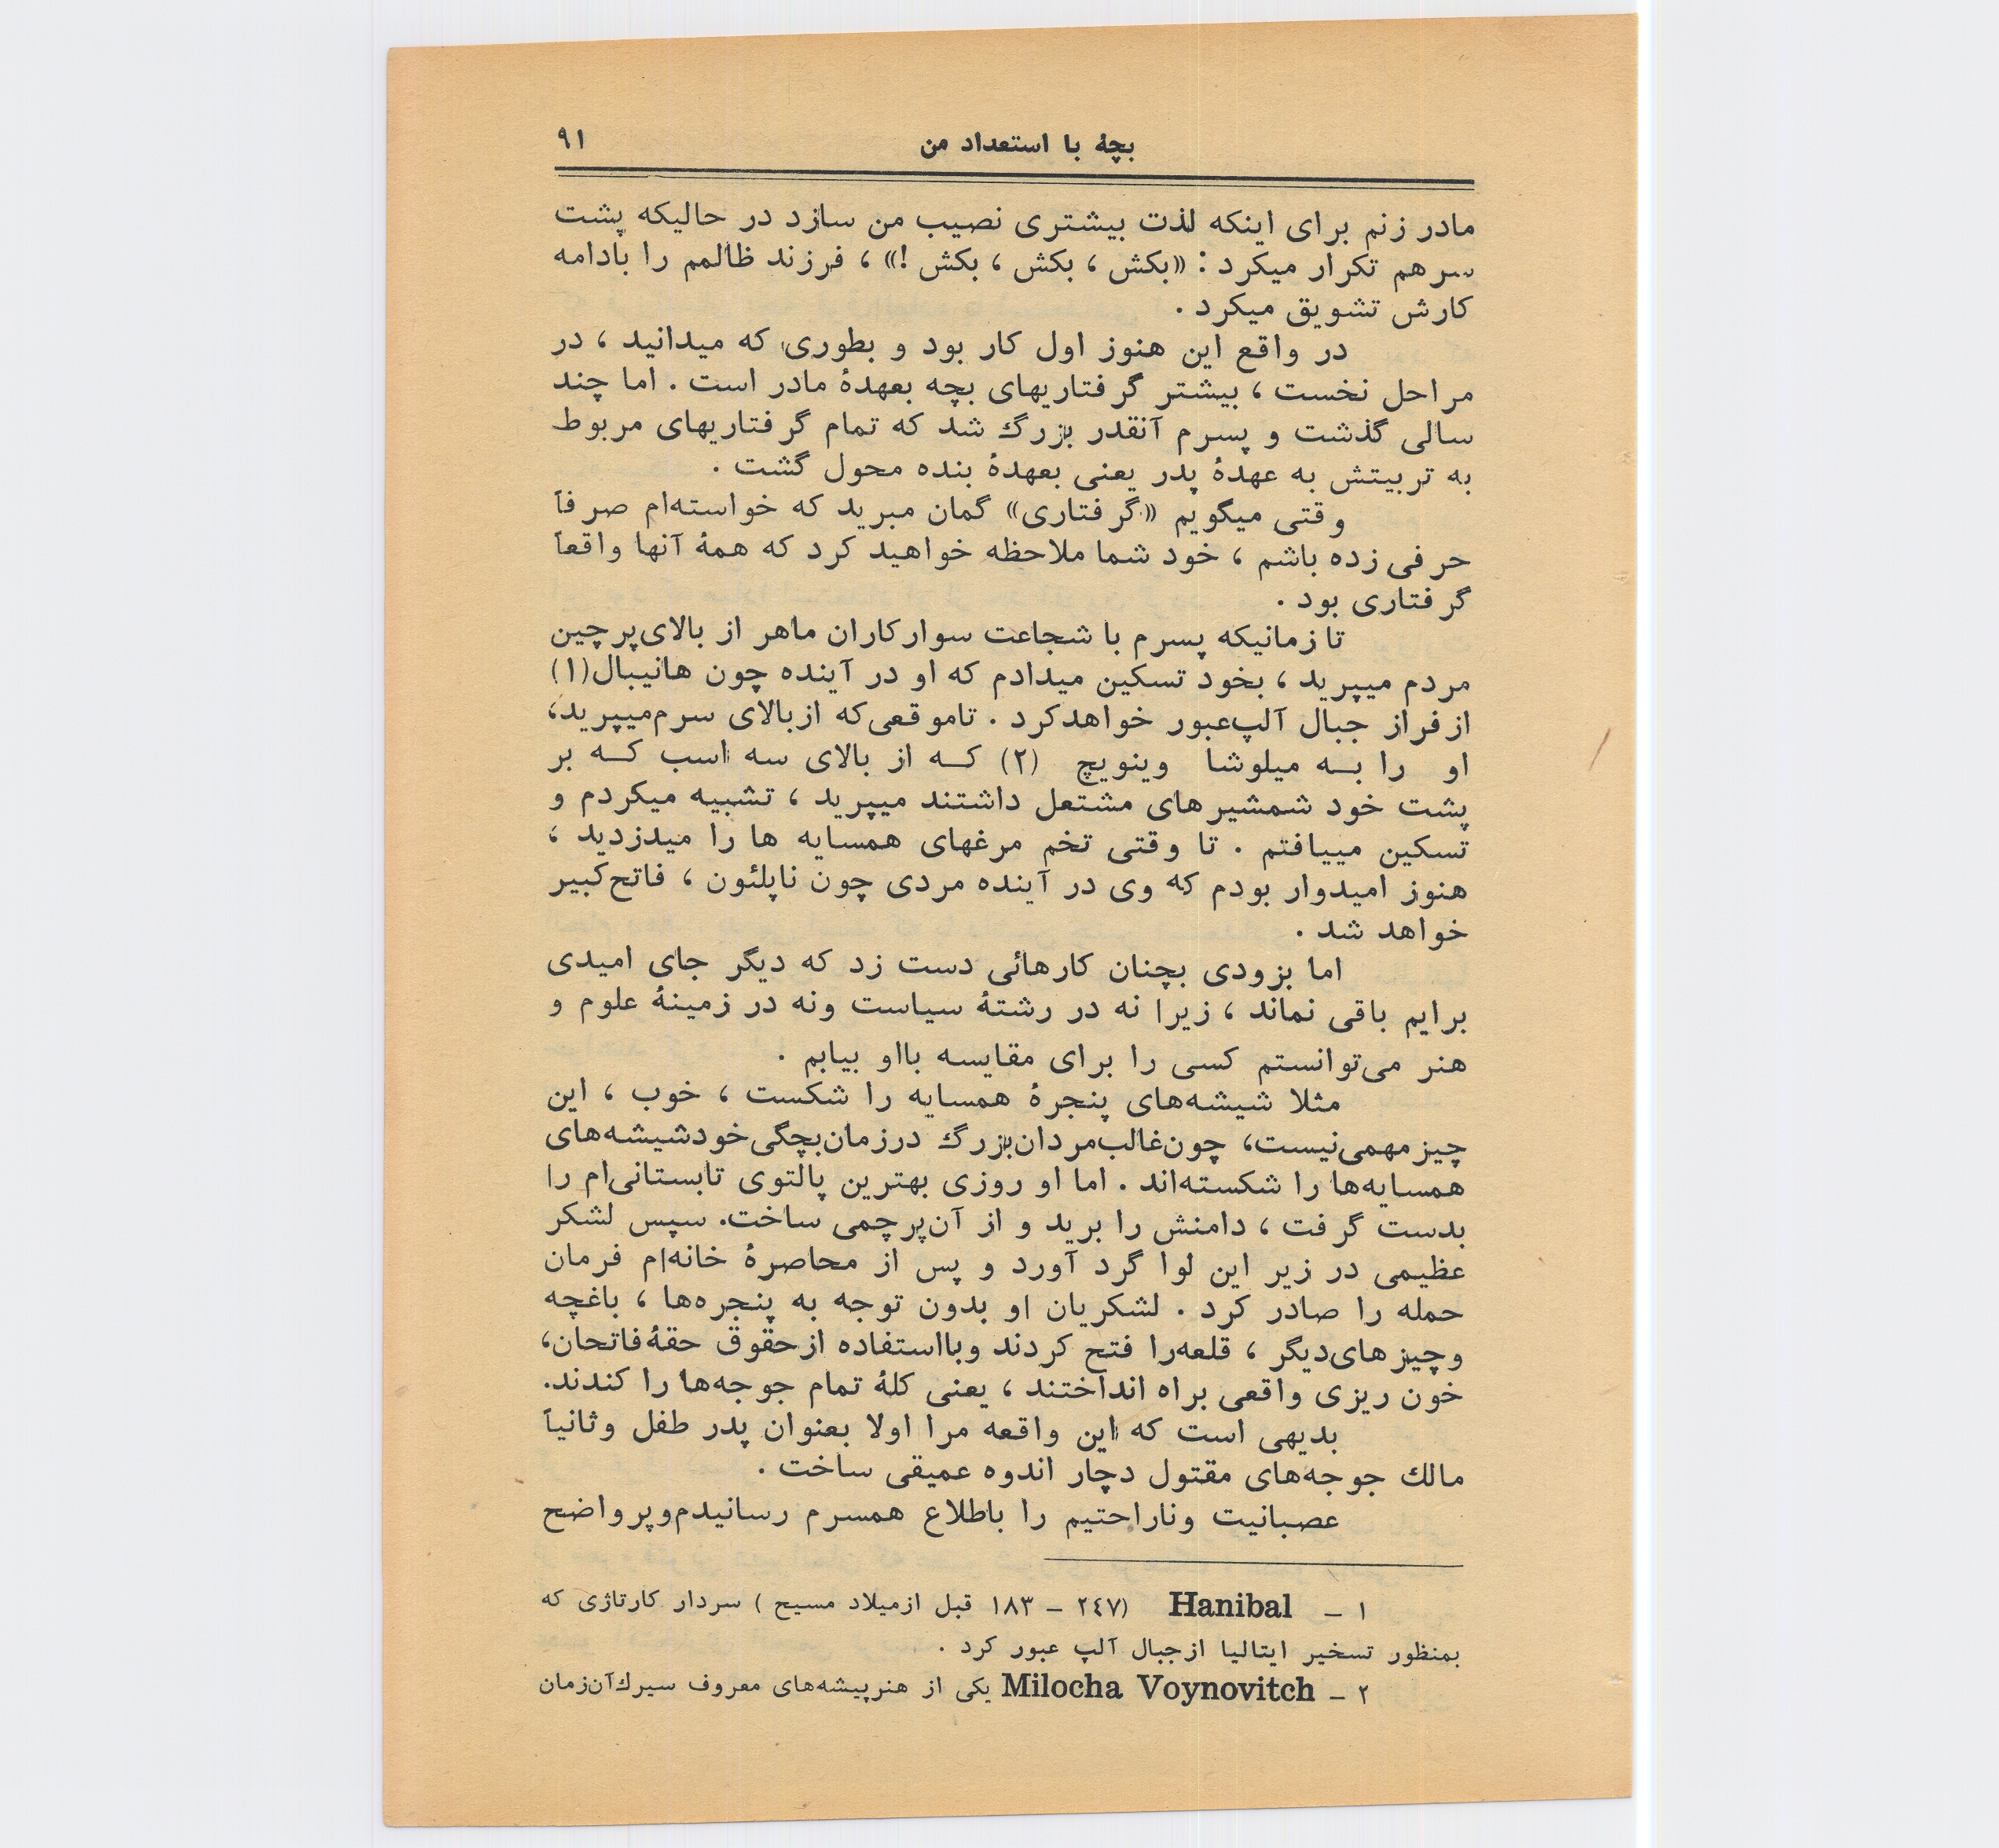 بچهٔ با استعداد من ۹۱
مادر زنم برای اینکه لذت بیشتری نصیب من سازد در حالیکه پشت
سرهم تکرار میکرد : «بکش ، بکش ، بکش !» ، فرزند ظالمم را بادامه
کارش تشویق میکرد .
در واقع این هنوز اول کار بود و بطوری که میدانید ، در
مراحل نخست ، بیشتر گرفتاریهای بچه بعهدهٔ مادر است . اما چند
سالی گذشت و پسرم آنقدر بزرگ شد که تمام گرفتاریهای مربوط
به تربیتش به عهدهٔ پدر یعنی بعهدهٔ بنده محول گشت .
وقتی میگویم «گرفتاری» گمان مبرید که خواسته‌ام صرفاً
حرفی زده باشم ، خود شما ملاحظه خواهید کرد که همهٔ آنها واقعاً
گرفتاری بود .
تا زمانیکه پسرم با شجاعت سوارکاران ماهر از بالای پرچین
مردم میپرید ، بخود تسکین میدادم که او در آینده چون هانیبال(۱)
از فراز جبال آلپ عبور خواهد کرد . تا موقعی که از بالای سرم میپرید،
او را بـه میلوشا وینویچ (۲) کـه از بالای سه اسب کـه بر
پشت خود شمشیرهای مشتعل داشتند میپرید ، تشبیه میکردم و
تسکین مییافتم . تا وقتی تخم مرغهای همسایه ها را میدزدید ،
هنوز امیدوار بودم که وی در آینده مردی چون ناپلئون ، فاتح کبیر
خواهد شد .
اما بزودی بچنان کارهائی دست زد که دیگر جای امیدی
برایم باقی نماند ، زیرا نه در رشتهٔ سیاست ونه در زمینهٔ علوم و
هنر می‌توانستم کسی را برای مقایسه بااو بیابم .
مثلا شیشه‌های پنجرهٔ همسایه را شکست ، خوب ، این
چیز مهمی نیست، چون غالب مردان بزرگ در زمان بچگی خود شیشه‌های
همسایه‌ها را شکسته‌اند . اما او روزی بهترین پالتوی تابستانی‌ام را
بدست گرفت ، دامنش را برید و از آن پرچمی ساخت. سپس لشکر
عظیمی در زیر این لوا گرد آورد و پس از محاصرهٔ خانه‌ام فرمان
حمله را صادر کرد . لشکریان او بدون توجه به پنجره‌ها ، باغچه
و چیزهای دیگر ، قلعه را فتح کردند و با استفاده از حقوق حقهٔ فاتحان،
خون ریزی واقعی براه انداختند ، یعنی کلهٔ تمام جوجه‌ها را کندند.
بدیهی است که این واقعه مرا اولا بعنوان پدر طفل و ثانیاً
مالك جوجه‌های مقتول دچار اندوه عمیقی ساخت .
عصبانیت وناراحتیم را باطلاع همسرم رسانیدم و پر واضح
۱ – Hanibal (۲٤۷ – ۱۸۳ قبل از میلاد مسیح ) سردار کارتاژی که
بمنظور تسخیر ایتالیا از جبال آلپ عبور کرد .
۲ – Milocha Voynovitch یکی از هنرپیشه‌های معروف سیرك آن زمان